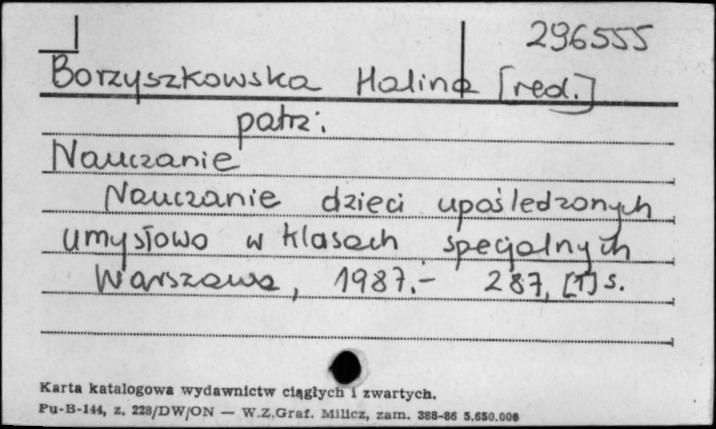 296555
Borzyszkowska Halina [red.]
patrz:
Nauczanie
Nauczanie dzieci upośledzonych
umysłowo w klasach specjalnych
Warszawa, 1987.- 287, [1] s.
Karta katalogowa wydawnictw ciągłych i zwartych.
Pu-B-144, z. 228/DW/ON — W.Z.Graf. Milicz, zam. 388-86 5.650.000